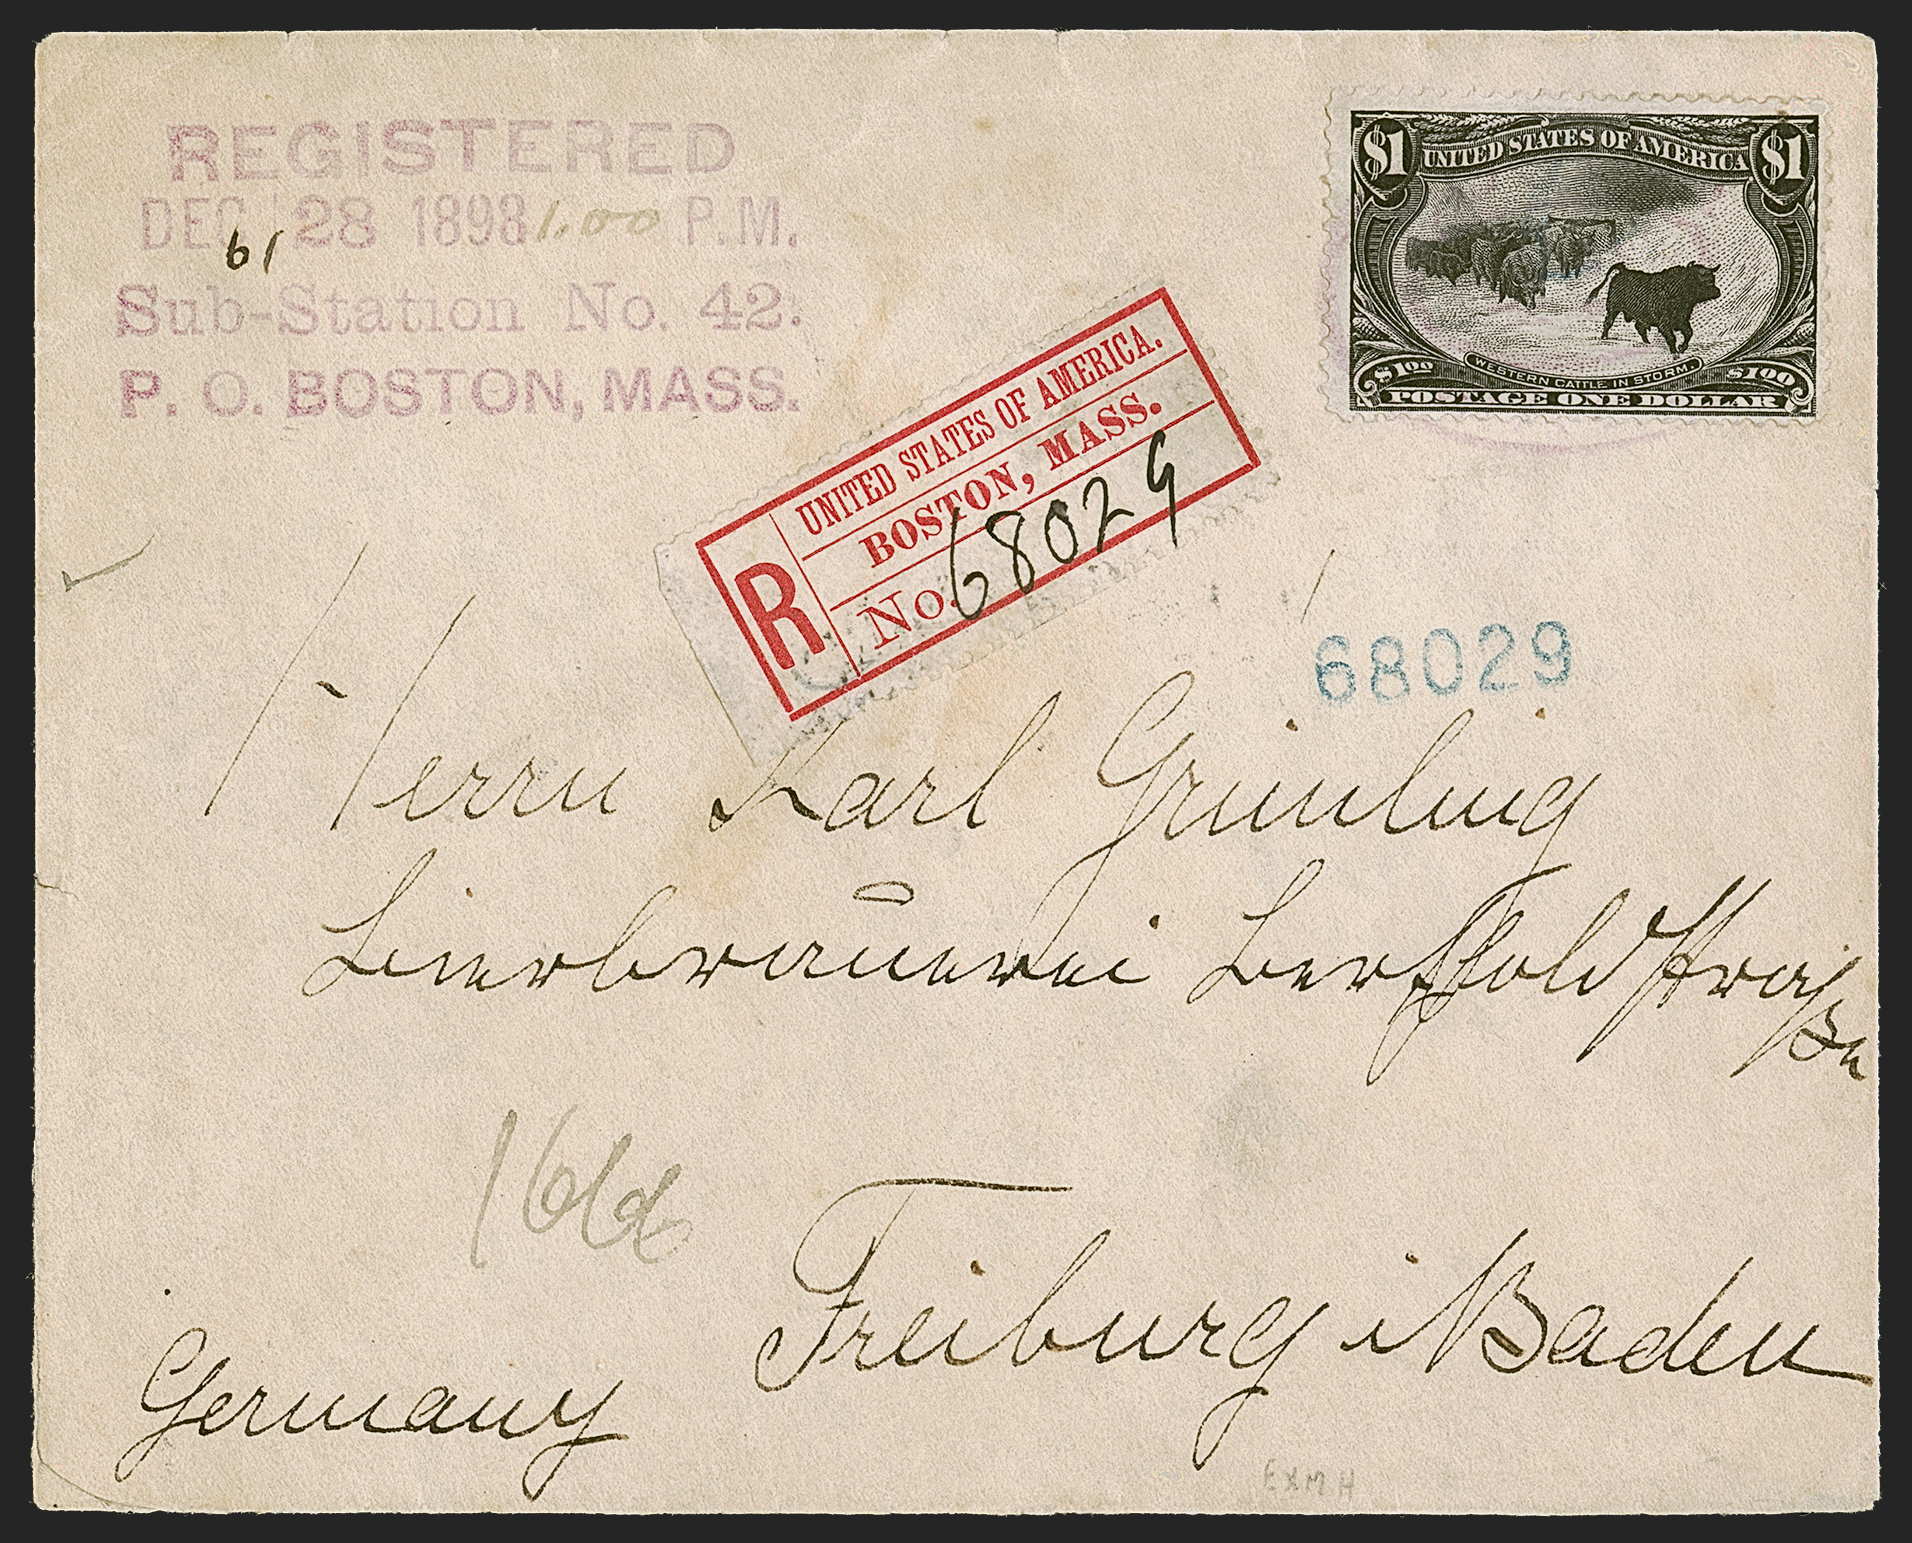 REGISTERED
DEC 28 1898 1.00 P.M.
61
Sub-Station No. 42.
P. O. BOSTON, MASS.
$1 UNITED STATES OF AMERICA $1
WESTERN CATTLE IN STORM.
$1 00 $1 00
POSTAGE ONE DOLLAR
R
UNITED STATES OF AMERICA.
BOSTON, MASS.
No. 68029
68029
Herrn Karl Grünling
Bierbrauerei Bertholdstraße
Freiburg i Baden
Germany
EXMH